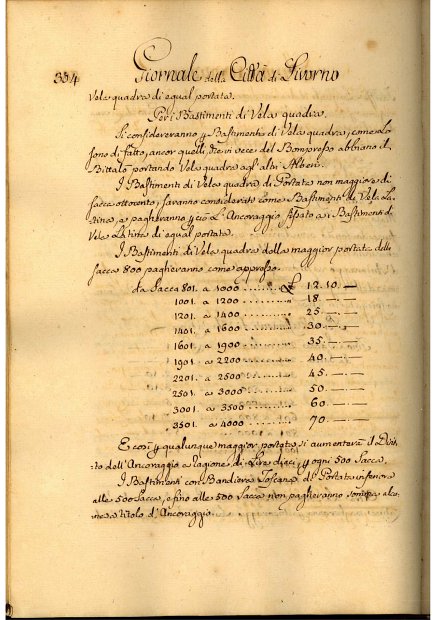 334 Giornale della Città di Livorno
Vela quadra di equal portata.
Per i Bastimenti di Vela quadra.
Si considereranno p Bastimenti di Vela quadra, come lo
sono di fatto, ancor quelli, che in vece del Bompresso abbiano il
Bittalo portando Vela quadra agl'altri Alberi.
I Bastimenti di Vela quadra di Portata non maggiore di
sacca ottocento, saranno considerati come Bastimenti di Vela La-
tina, e pagheranno p ciò l'Ancoraggio fissato a i Bastimenti di
Vela Latina di equal portata.
I Bastimenti di Vela quadra della maggior portata delle
Sacca 800 pagheranno come appresso.
da Sacca 801. a 1000 .......... £ 12. 10. —
1001. a 1200 .......... 18. — —
1201. a 1400 .......... 25. — —
1401. a 1600 .......... 30. — —
1601. a 1900 .......... 35. — —
1901. a 2200 .......... 40. — —
2201. a 2500 .......... 45. — —
2501. a 3000 .......... 50. — —
3001. a 3500 .......... 60. — —
3501. a 4000 .......... 70. — —
E così p qualunque maggior portata si aumenterà il Drit-
to dell'Ancoraggio a ragione di Lire dieci p ogni 500 Sacca.
I Bastimenti con Bandiera Toscana di Portata inferiore
alle 500 Sacca, e fino alle 500 Sacca non pagheranno somma alcu-
na a titolo d'Ancoraggio.